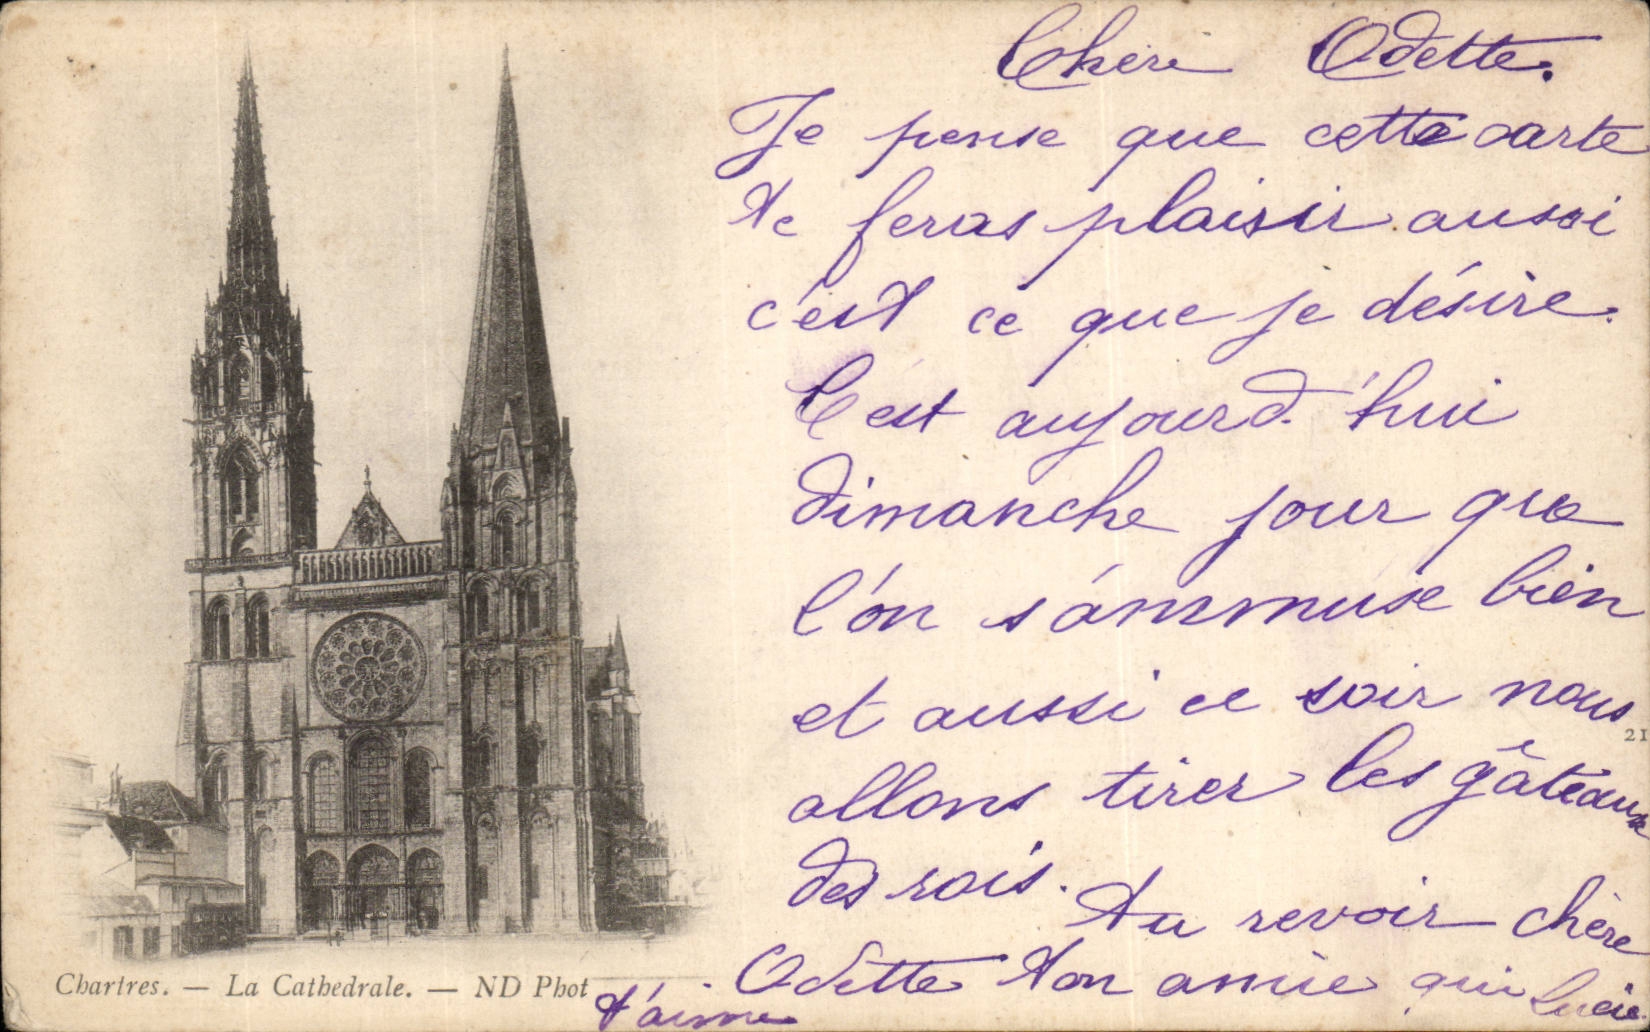 Chère Odette.
Je pense que cette carte
te feras plaisir aussi
c'est ce que je désire.
C'est aujourd'hui
dimanche jour que
l'on s'ammuse bien
et aussi ce soir nous
allons tirer les gâteaux
des rois.
Au revoir chère
Odette ton amie qui
t'aime Lucie
21
Chartres. — La Cathédrale. — ND Phot